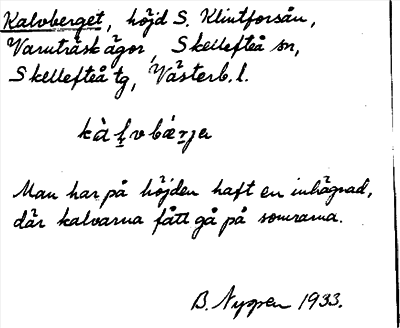 Kalvberget, höjd S. Klintforsån,
Varuträsk ägor, Skellefteå sn,
Skellefteå tg, Västerb. l.
kàḷvbærjɐ
Man har på höjden haft en inhägnad,
där kalvarna fått gå på somrarna.
B. Nygren 1933.